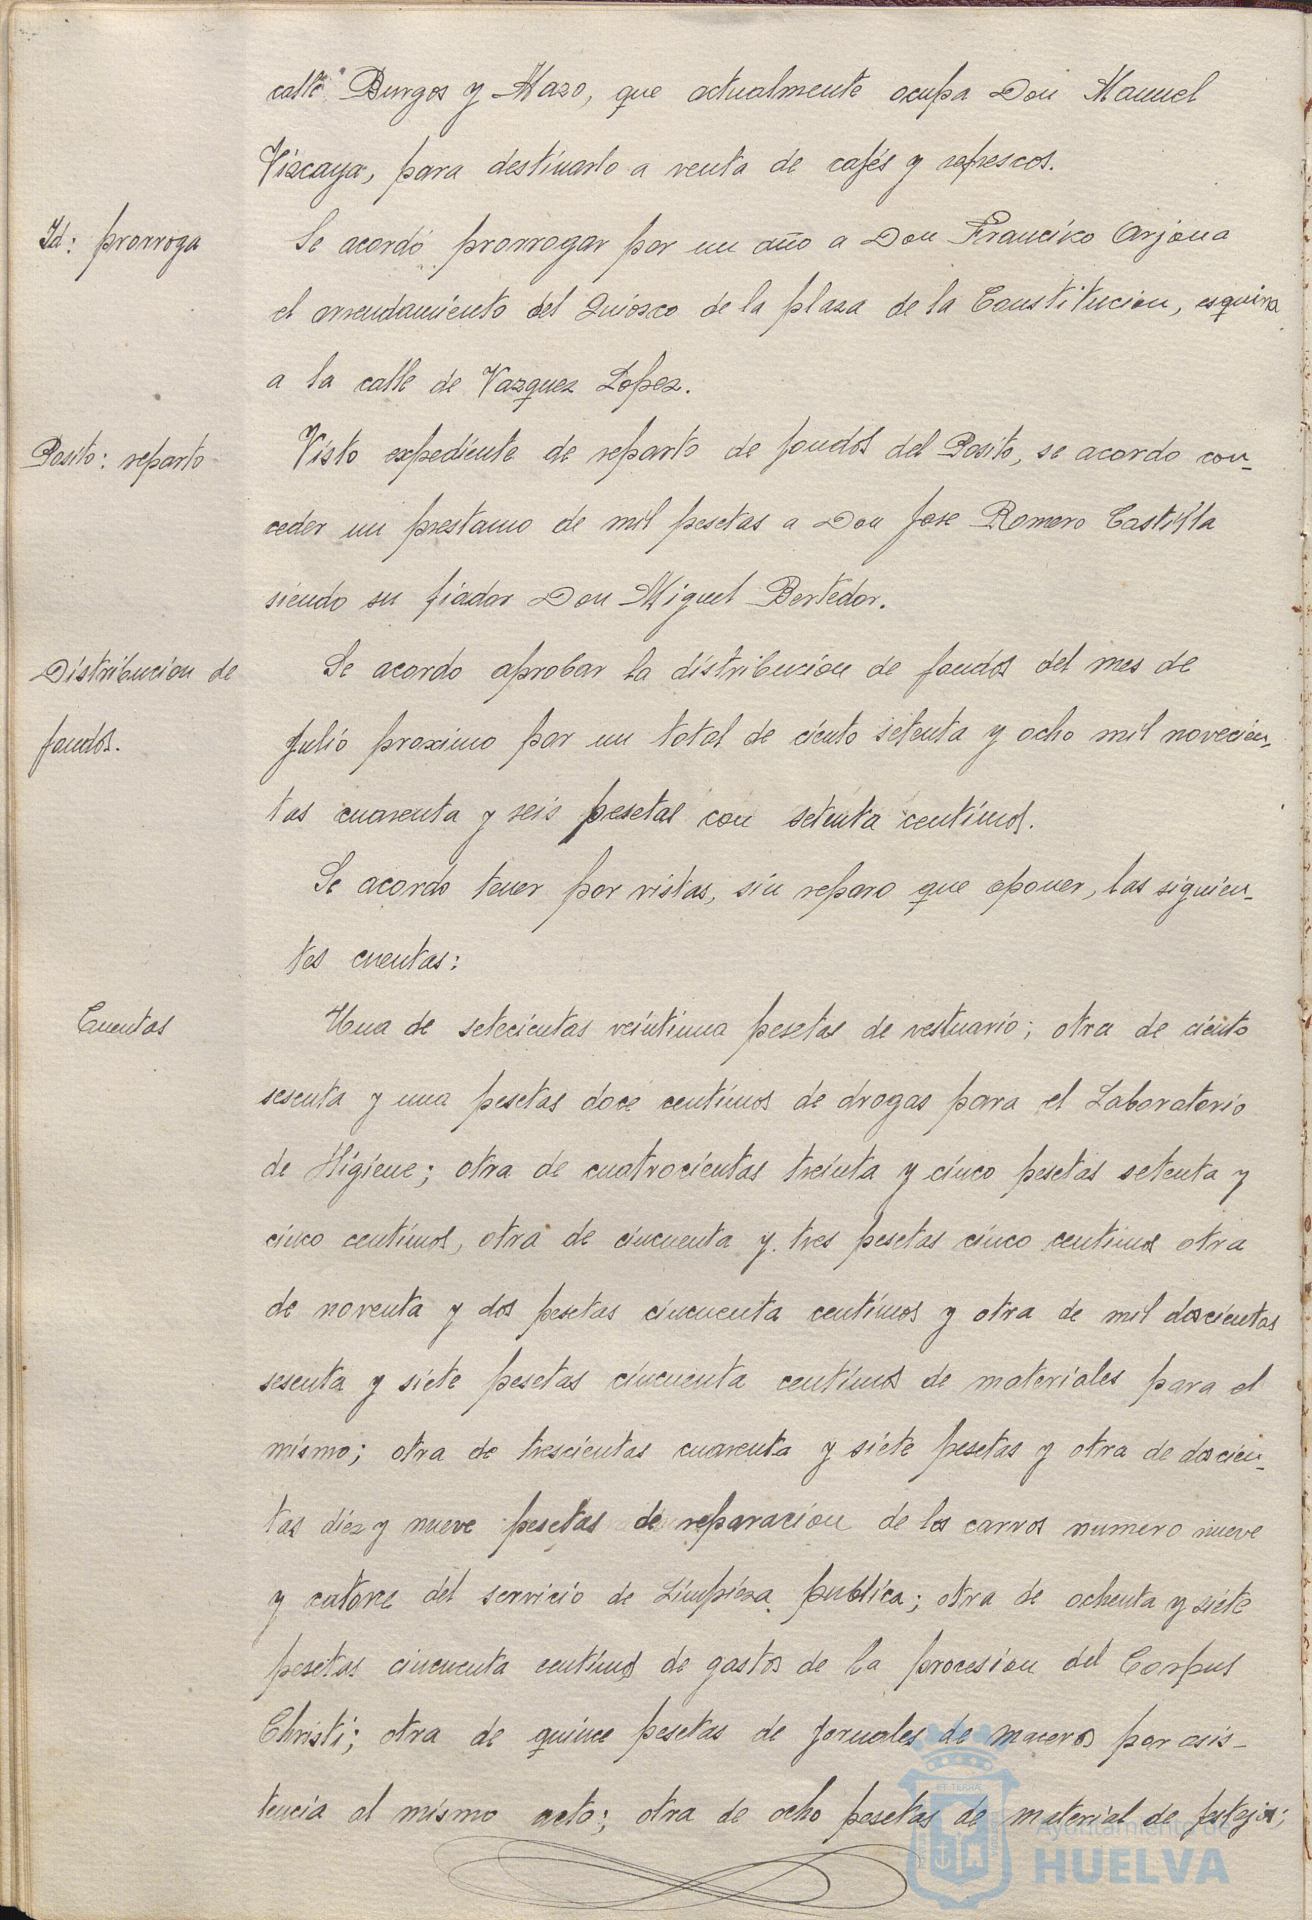 calle Burgos y Mazo, que actualmente ocupa Don Manuel
Vizcaya, para destinarlo a venta de cafés y refrescos.
Id: prorroga
Se acordó prorrogar por un año a Don Francisco Arjona
el arrendamiento del Quiosco de la plaza de la Constitucion, esquina
a la calle de Vazquez Lopez.
Posito: reparto
Visto expediente de reparto de fondos del Posito, se acordo con-
ceder un prestamo de mil pesetas a Don Jose Romero Castilla
siendo su fiador Don Miguel Bertedor.
Distribucion de
fondos.
Se acordo aprobar la distribucion de fondos del mes de
Julio proximo por un total de ciento setenta y ocho mil novecien-
tas cuarenta y seis pesetas con setenta centimos.
Se acordo tener por vistas, sin reparo que oponer, las siguien-
tes cuentas:
Cuentas
Una de setecientas veintiuna pesetas de vestuario; otra de ciento
sesenta y una pesetas doce centimos de drogas para el Laboratorio
de Higiene; otra de cuatrocientas treinta y cinco pesetas setenta y
cinco centimos, otra de cincuenta y tres pesetas cinco centimos otra
de noventa y dos pesetas cincuenta centimos y otra de mil doscientas
sesenta y siete pesetas cincuenta centimos de materiales para el
mismo; otra de trescientas cuarenta y siete pesetas y otra de doscien-
tas diez y nueve pesetas de reparacion de los carros numero nueve
y catorce del servicio de Limpieza publica; otra de ochenta y siete
pesetas cincuenta centimos de gastos de la procesion del Corpus
Christi; otra de quince pesetas de jornales de maceros por asis-
tencia al mismo acto; otra de ocho pesetas de material de festejos;
ET TERRÆ
Ayuntamiento de
HUELVA